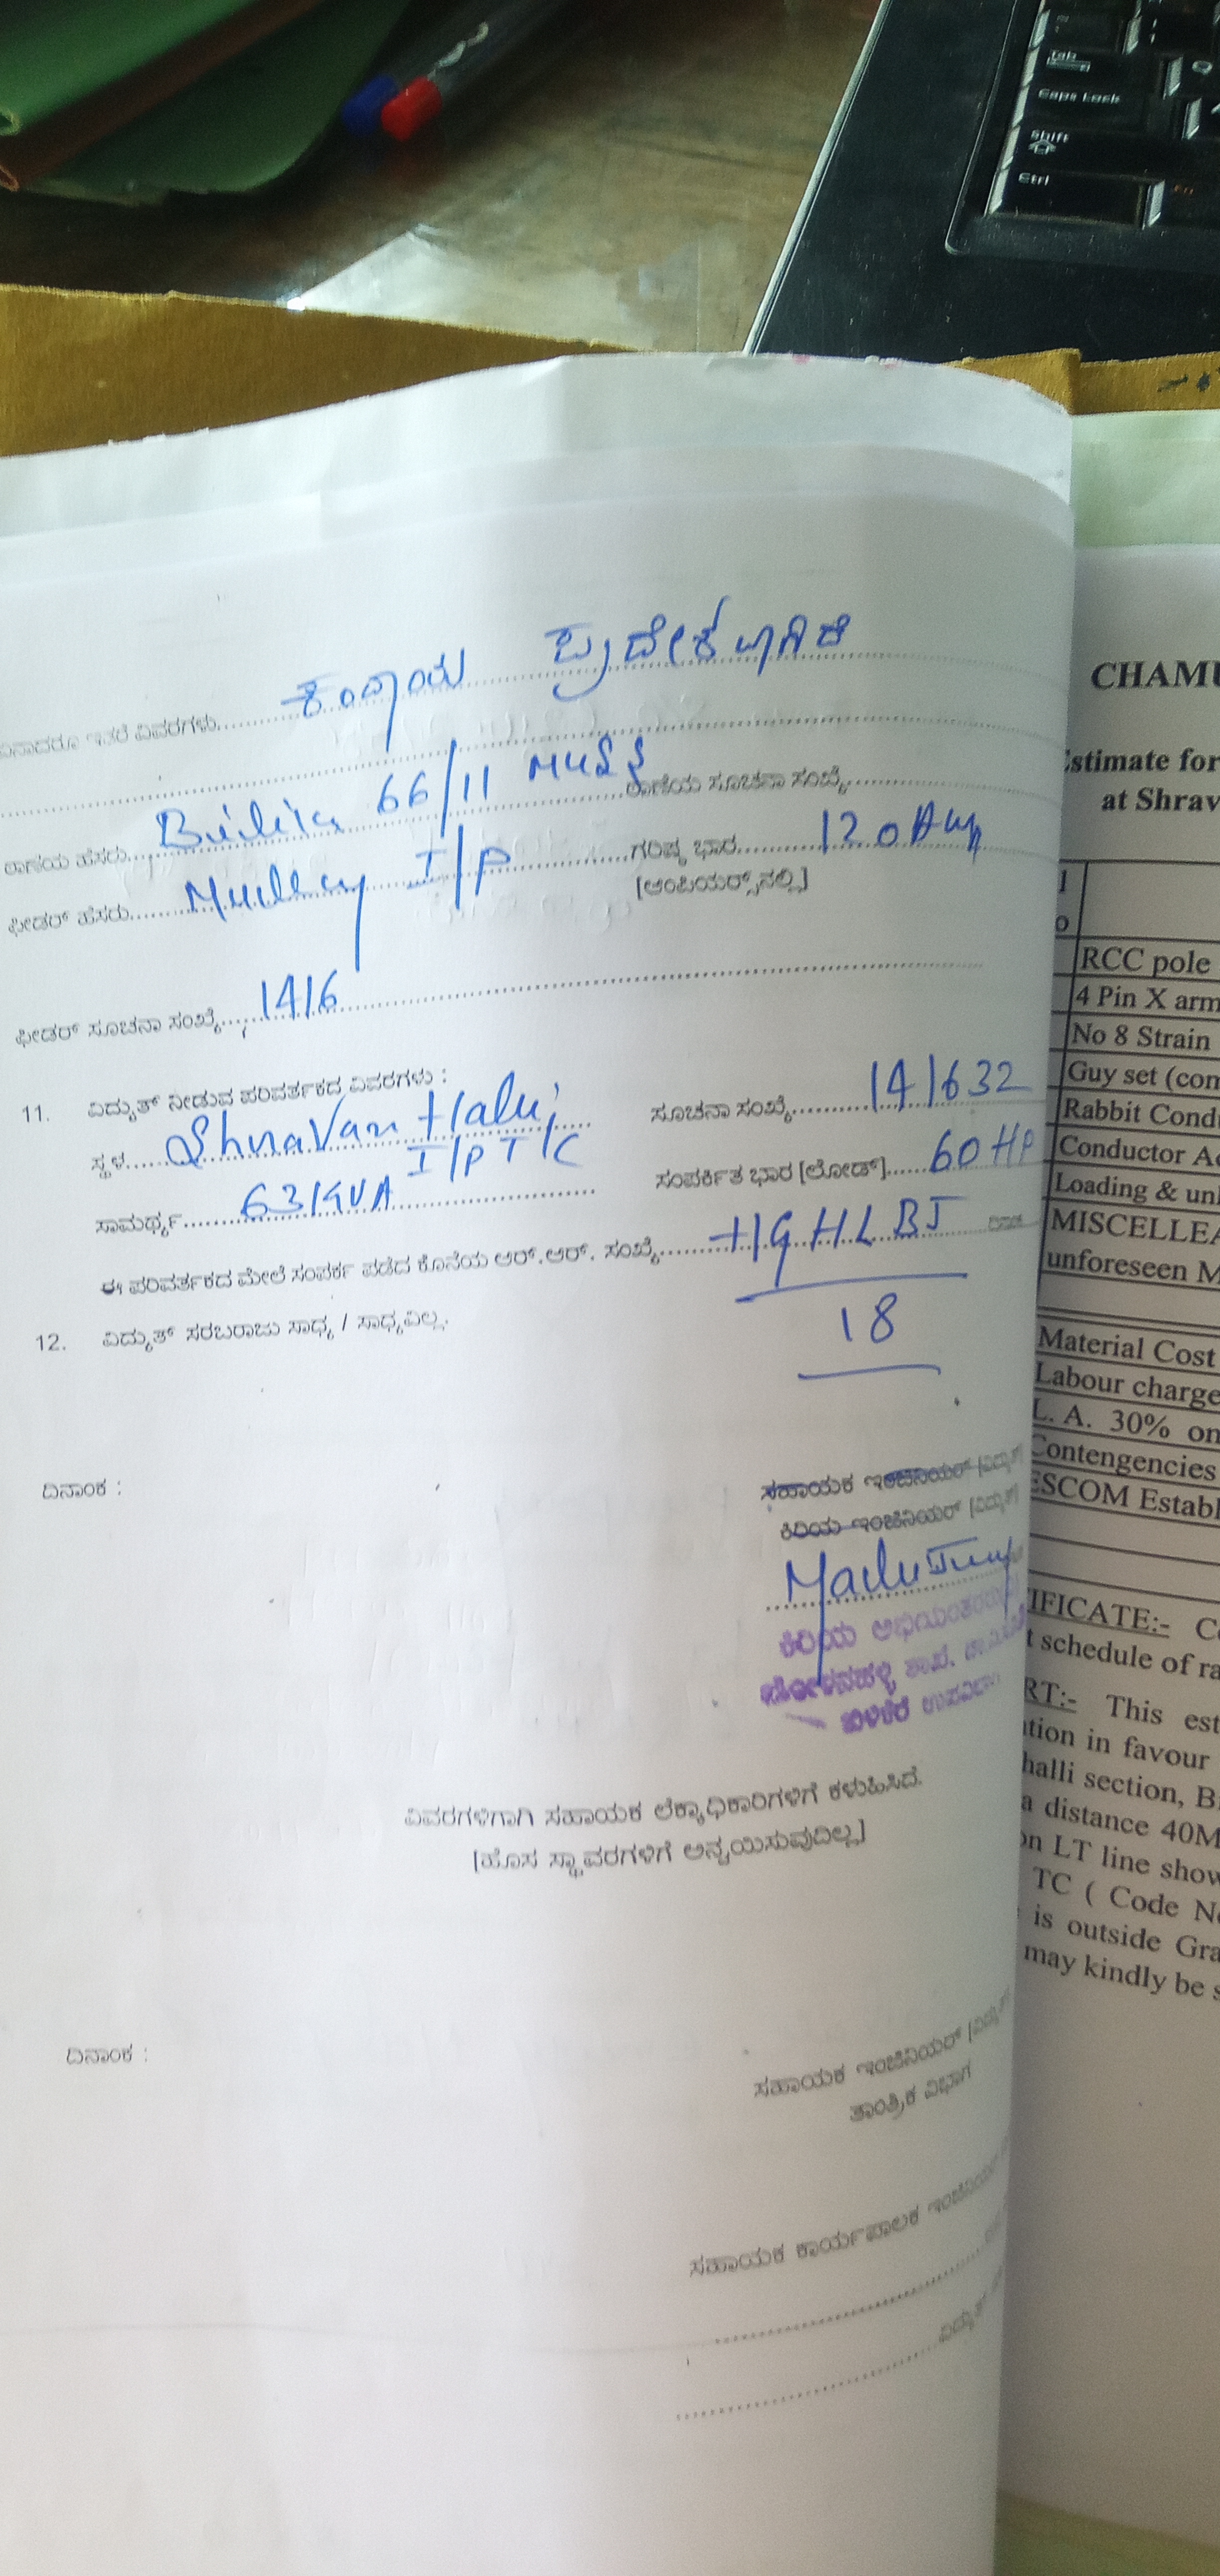 Tab
Caps Lock
Shift
Ctrl
ಇತರೆ ವಿವರಗಳು
ಕಂದಾಯ
66/11 MUSS
ಠಾಣೆಯ ಸೂಚನಾ ಸಂಖ್ಯೆ
ಠಾಣೆಯ ಹೆಸರು
I/P
ಗರಿಷ್ಠ ಭಾರ 120 Amp
ಫೀಡರ್ ಹೆಸರು
[ಆಂಪಿಯರ್ಸ್‌ನಲ್ಲಿ]
ಫೀಡರ್ ಸೂಚನಾ ಸಂಖ್ಯೆ 1416
11. ವಿದ್ಯುತ್ ನೀಡುವ ಪರಿವರ್ತಕದ ವಿವರಗಳು :
ಸ್ಥಳ ShraVan Halli ಸೂಚನಾ ಸಂಖ್ಯೆ 141632
I/P T/C
ಸಾಮರ್ಥ್ಯ 63KVA ಸಂಪರ್ಕಿತ ಭಾರ [ಲೋಡ್] 60 HP
ಈ ಪರಿವರ್ತಕದ ಮೇಲೆ ಸಂಪರ್ಕ ಪಡೆದ ಕೊನೆಯ ಆರ್.ಆರ್. ಸಂಖ್ಯೆ HGHLBJ
18
12. ವಿದ್ಯುತ್ ಸರಬರಾಜು ಸಾಧ್ಯ / ಸಾಧ್ಯವಿಲ್ಲ.
ದಿನಾಂಕ :
ಸಹಾಯಕ ಇಂಜಿನಿಯರ್
ಕಿರಿಯ ಇಂಜಿನಿಯರ್
ಕಿರಿಯ
ವಿವರಗಳಿಗಾಗಿ ಸಹಾಯಕ ಲೆಕ್ಕಾಧಿಕಾರಿಗಳಿಗೆ ಕಳುಹಿಸಿದೆ.
[ಹೊಸ ಸ್ಥಾವರಗಳಿಗೆ ಅನ್ವಯಿಸುವುದಿಲ್ಲ]
ದಿನಾಂಕ :
ಸಹಾಯಕ ಇಂಜಿನಿಯರ್
ತಾಂತ್ರಿಕ ವಿಭಾಗ
ಸಹಾಯಕ ಕಾರ್ಯಪಾಲಕ ಇಂಜಿನಿಯರ್
CHAMU
Estimate for
at Shrav
RCC pole
4 Pin X arm
No 8 Strain
Guy set (com
Rabbit Cond
Conductor Ac
Loading & unl
MISCELLEA
unforeseen M
Material Cost
Labour charge
L. A. 30% on
Contengencies
ESCOM Establ
IFICATE:- Co
t schedule of ra
RT:- This est
tion in favour
halli section, B
a distance 40M
on LT line show
TC ( Code No
is outside Gra
may kindly be s